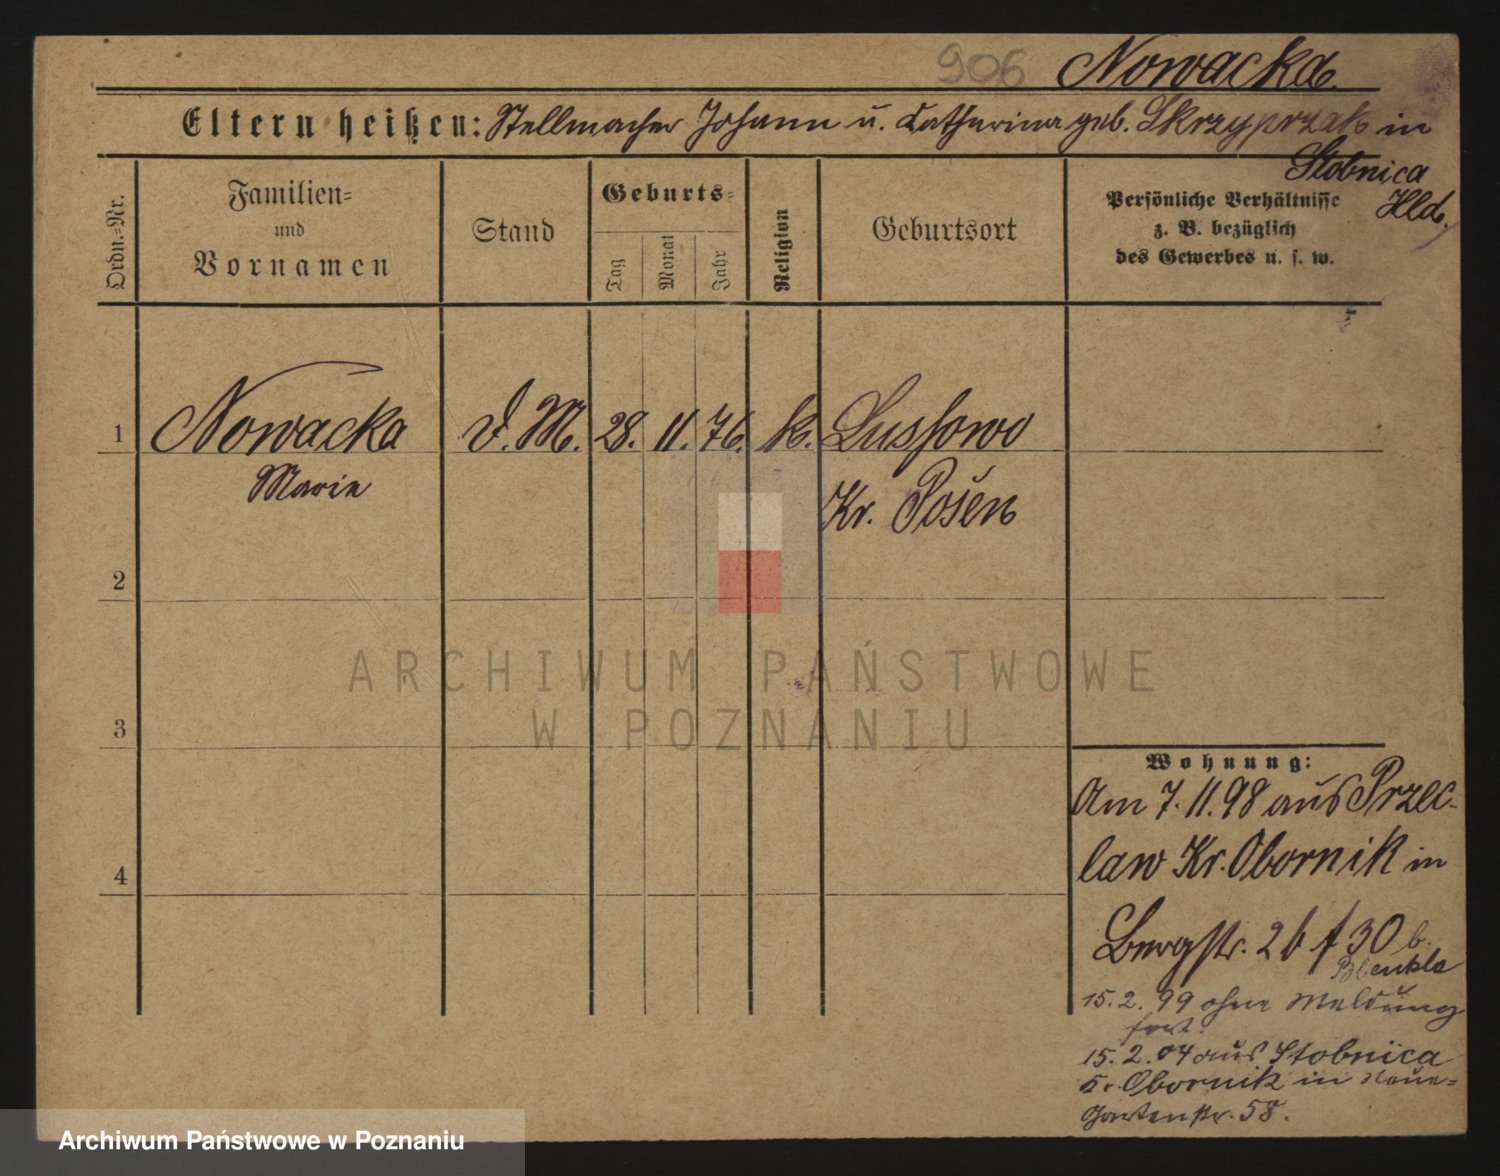 906 Nowacka.
Eltern heißen: Stellmacher Johann u. Catharina geb. Skrzypczak in
Stobnica
Hld.
Ordn.-Nr.
Familien-
und
Vornamen
Stand
Geburts-
Tag
Monat
Jahr
Religion
Geburtsort
Persönliche Verhältnisse
z. B. bezüglich
des Gewerbes u. s. w.
1 Nowacka D. M. 28. 11. 76. k. Lussowo
Marie
Kr. Posen
2
3
4
ARCHIWUM PAŃSTWOWE
W POZNANIU
Wohnung:
Am 7. 11. 98 aus Przec-
law Kr. Obornik in
Bergstr. 2b f 30 b.
15. 2. 99 ohne Meldung
fort.
15. 2. 04 aus Stobnica
Kr. Obornik in Neue-
Gartenstr. 58.
Archiwum Państwowe w Poznaniu